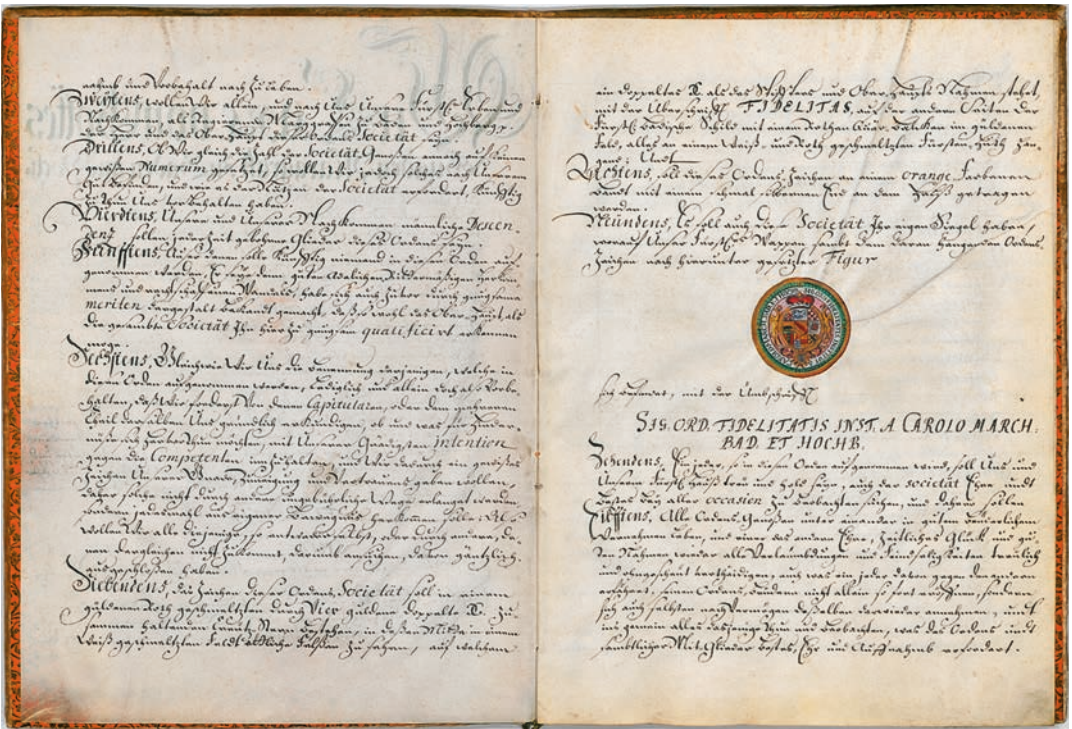 nahmb und Vorbehalt nach zu leben.
Zweytens, wollen Wir allein, und nach Uns Unsere Fürstl. Leibes und
Nachkommen, als Regierende Marggrafen zu Baden und Hochberg pp.
der Herr und das Ober-Haupt des Societät seyn.
Drittens, Ob Wir gleich die Zahl der Societäts-Genoßen annoch auf keinen
gewißen Numerum gesetzt, so wollen Wir jedoch solches nach Unserem
Gut Befinden, und wie es der Nutzen der Societät erfordert, künfftig
zu thun Uns vorbehalten haben.
Vierdtens, Unsere und Unserer Nachkommen männliche Descen-
denz sollen jederzeit gebohrne Glieder dieses Ordens seyn.
Fünfftens, Außer denen solle künfftig niemand in diesen Orden auf-
genommen werden, Er seye dann guter Adelichen Rittermäßigen Herkom-
mens und rechtschaffenen Wandels, habe sich auch zuvor durch gnugsame
meriten dergestalt bekannt gemacht, daß so wohl das Ober-Haupt, als
die gesambte Societät Ihn hierzu gnugsam qualificirt erkennen
möge.
Sechstens, Gleichwie Wir Uns die Benennung derjenigen, welche in
diesen Orden aufgenommen werden, lediglich und allein doch also Vorbe-
halten, daß Wir forderst von denen Capitularen, oder dem mehreren
Theil derselben Uns gründlich erkundigen, ob und was für Hinder-
nuß sich hierbey thun möchten, mit Unserer Gnädigsten intention
gegen die Competenten innzuhalten, und Wir dardurch ein gewißes
Zeichen Unserer Gnade, Zuneigung und Vertrauens geben wollen,
daher solche nicht durch andere ungebührliche Wege erlangt werden,
sondern jedesmahl aus eigener Bewegnus herkommen solle; Also
wollen Wir alle diejenige, so entweder selbst, oder durch andere, de-
nen dergleichen nicht zukommt, darumb ansuchen, davon gäntzlich
ausgeschloßen haben.
Siebendens, das Zeichen dieser Ordens Societät soll in einem
güldenen Roth geschmeltzten durch Vier güldene doppelte C. zu-
sammen haltenden Creutz-Stern bestehen, in deßen Mitte in einem
Weiß geschmeltzten Feldt etliche Felßen zu sehen, auf welchem
ein doppeltes C. als des Stiffters und Ober-Haupts Nahmen stehet,
mit der Überschrifft FIDELITAS, auf der andern Seiten der
Fürstl. Badische Schild mit einem Rothen Quer-Balcken im güldenen
Feld, alles an einem Weiß- und Roth geschmeltzten Fürsten-Huth han-
gend; Undt
Achtens, soll dieses Ordens-Zeichen an einem orange-farbenen
Bandt mit einem schmal silbernen End an dem Halß getragen
werden.
Neundens, Es soll auch diese Societät Ihr eigen Siegel haben,
worauf Unser Fürstl. Wappen sambt dem daran hangenden Ordens-
Zeichen nach hierunter gesetzter Figur
sich befindet, mit der Umbschrifft
SIG. ORD. FIDELITATIS INST. A CAROLO MARCH:
BAD. ET HOCHB.
Zehendens, Ein jeder, so in diesen Orden aufgenommen wird, soll Uns und
Unserm Fürstl. Hauß treu und hold seyn, auch der societät Ehre undt
Bestes bey aller occasion zu beobachten suchen, und daher sollen
Eilfftens, Alle Ordens-Genoßen unter einander in gutem brüderlichem
Vernehmen leben, und einer des andern Ehre, Zeitliches Glück und gu-
den Nahmen wieder all Verläumbdungen und Feindseligkeiten treulich
und ohngescheut vertheidigen, auch was ein jeder davon gegen den andern
erfahret, seinem Ordens-Bruder nicht allein so fort eröffnen, sondern
sich auch selbsten nach Vermögen deßelben darwieder annehmen, undt
ins gemein alles dasjenige thun und beobachten, was des Ordens undt
sämbtlicher Mit-Glieder bestes, Ehr und Auffnahmb erfordert.